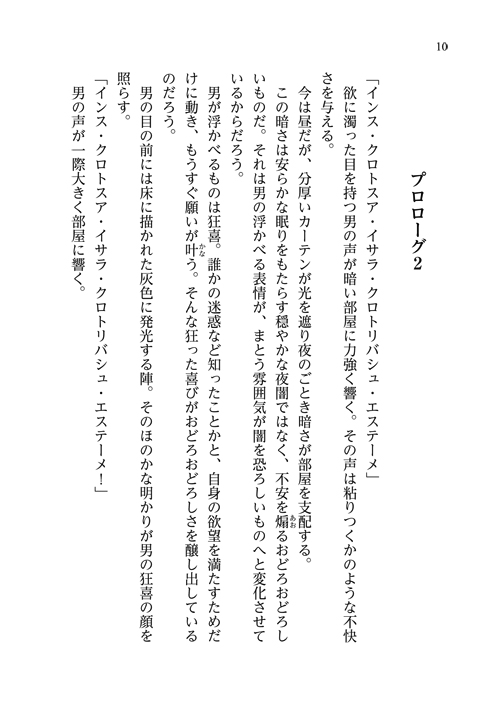 10
プロローグ2
「インス・クロトスア・イサラ・クロトリバシュ・エステーメ」
欲に濁った目を持つ男の声が暗い部屋に力強く響く。その声は粘りつくかのような不快
さを与える。
今は昼だが、分厚いカーテンが光を遮り夜のごとき暗さが部屋を支配する。
この暗さは安らかな眠りをもたらす穏やかな夜闇ではなく、不安を煽るおどろおどろし
いものだ。それは男の浮かべる表情が、まとう雰囲気が闇を恐ろしいものへと変化させて
いるからだろう。
男が浮かべるものは狂喜。誰かの迷惑など知ったことかと、自身の欲望を満たすためだ
けに動き、もうすぐ願いが叶う。そんな狂った喜びがおどろおどろしさを醸し出している
のだろう。
男の目の前には床に描かれた灰色に発光する陣。そのほのかな明かりが男の狂喜の顔を
照らす。
「インス・クロトスア・イサラ・クロトリバシュ・エステーメ！」
男の声が一際大きく部屋に響く。